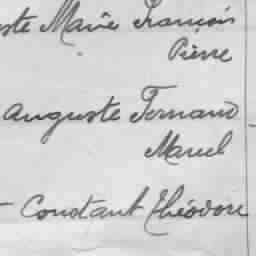 ste Marie François
Pierre
Auguste Fernand
Marcel
Constant Théodore